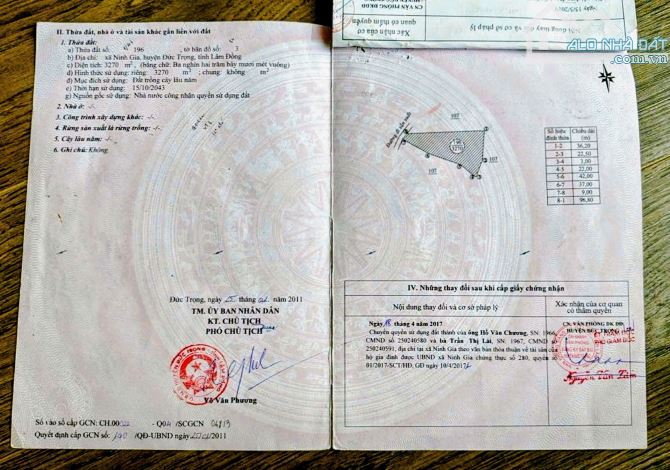 II. Thửa đất, nhà ở và tài sản khác gắn liền với đất
1. Thửa đất:
a) Thửa đất số: 196, tờ bản đồ số: 3
b) Địa chỉ: xã Ninh Gia, huyện Đức Trọng, tỉnh Lâm Đồng
c) Diện tích: 3270 m², (bằng chữ: Ba nghìn hai trăm bảy mươi mét vuông)
d) Hình thức sử dụng: riêng: 3270 m²; chung: không m²
đ) Mục đích sử dụng: Đất trồng cây lâu năm
e) Thời hạn sử dụng: 15/10/2043
g) Nguồn gốc sử dụng: Nhà nước công nhận quyền sử dụng đất
2. Nhà ở: -/-
3. Công trình xây dựng khác: -/-
4. Rừng sản xuất là rừng trồng: -/-
5. Cây lâu năm: -/-
6. Ghi chú: Không.
Đức Trọng, ngày tháng năm 2011
TM. ỦY BAN NHÂN DÂN
KT. CHỦ TỊCH
PHÓ CHỦ TỊCH
Võ Văn Phương
Số vào sổ cấp GCN: CH.00
Quyết định cấp GCN số: /QĐ-UBND ngày /2011
CN VĂN PHÒNG ĐKĐĐ
Xác nhận của cơ
quan có thẩm quyền
Nội dung thay đổi và cơ sở pháp lý
ALO NHÀ ĐẤT
.com.vn
107
196
3270
107
107
Số hiệu đỉnh thửa Chiều dài (m)
1-2 36,20
2-3 22,50
3-4 3,00
4-5 22,00
5-6 42,00
6-7 37,00
7-8 9,00
8-1 96,80
IV. Những thay đổi sau khi cấp giấy chứng nhận
Nội dung thay đổi và cơ sở pháp lý
Xác nhận của cơ quan
có thẩm quyền
Ngày 18 tháng 4 năm 2017
Chuyển quyền sử dụng đất thành của ông Hồ Văn Chương, SN: 1966,
CMND số 250240580 và bà Trần Thị Lài, SN: 1967, CMND số
250240591, địa chỉ tại xã Ninh Gia theo văn bản thỏa thuận về tài sản của
hộ gia đình được UBND xã Ninh Gia chứng thực số 280, quyển số
01/2017-SCT/HĐ, GD ngày 10/4/2017
CN. VĂN PHÒNG ĐK ĐĐ
HUYỆN ĐỨC TRỌNG
PHÓ GIÁM ĐỐC
Nguyễn Văn Tâm